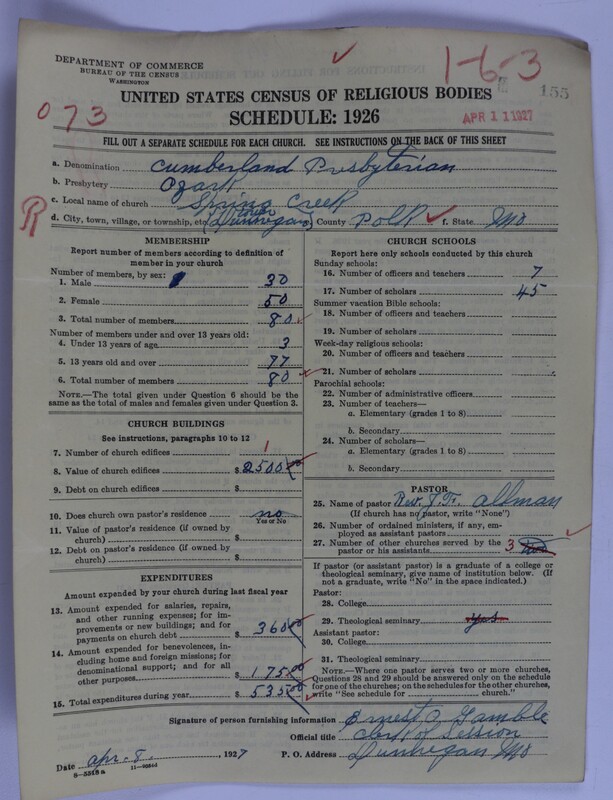 DEPARTMENT OF COMMERCE
BUREAU OF THE CENSUS
WASHINGTON
1-6-3
155
UNITED STATES CENSUS OF RELIGIOUS BODIES
SCHEDULE: 1926
073
APR 11 1927
FILL OUT A SEPARATE SCHEDULE FOR EACH CHURCH. SEE INSTRUCTIONS ON THE BACK OF THIS SHEET
a. Denomination Cumberland Presbyterian
b. Presbytery Ozark
c. Local name of church Spring Creek
R
d. City, town, village, or township, etc. (Town Dunnegan) e. County Polk f. State Mo
MEMBERSHIP
Report number of members according to definition of
member in your church
Number of members, by sex:
1. Male 30
2. Female 50
3. Total number of members 80
Number of members under and over 13 years old:
4. Under 13 years of age 3
5. 13 years old and over 77
6. Total number of members 80
NOTE.—The total given under Question 6 should be
the same as the total of males and females given under Question 3.
CHURCH BUILDINGS
See instructions, paragraphs 10 to 12
7. Number of church edifices 1
8. Value of church edifices $ 2500 00
9. Debt on church edifices $
10. Does church own pastor's residence no
Yes or No
11. Value of pastor's residence (if owned by
church) $
12. Debt on pastor's residence (if owned by
church) $
EXPENDITURES
Amount expended by your church during last fiscal year
13. Amount expended for salaries, repairs,
and other running expenses; for im-
provements or new buildings; and for
payments on church debt $ 360 00
14. Amount expended for benevolences, in-
cluding home and foreign missions; for
denominational support; and for all
other purposes $ 175 00
15. Total expenditures during year $ 535 00
CHURCH SCHOOLS
Report here only schools conducted by this church
Sunday schools:
16. Number of officers and teachers 7
17. Number of scholars 45
Summer vacation Bible schools:
18. Number of officers and teachers
19. Number of scholars
Week-day religious schools:
20. Number of officers and teachers
21. Number of scholars
Parochial schools:
22. Number of administrative officers
23. Number of teachers—
a. Elementary (grades 1 to 8)
b. Secondary
24. Number of scholars—
a. Elementary (grades 1 to 8)
b. Secondary
PASTOR
25. Name of pastor Rev. J. F. Allman
(If church has no pastor, write "None")
26. Number of ordained ministers, if any, em-
ployed as assistant pastors
27. Number of other churches served by the
pastor or his assistants 3
If pastor (or assistant pastor) is a graduate of a college or
theological seminary, give name of institution below. (If
not a graduate, write "No" in the space indicated.)
Pastor:
28. College
29. Theological seminary yes
Assistant pastor:
30. College
31. Theological seminary
NOTE.—Where one pastor serves two or more churches,
Questions 28 and 29 should be answered only on the schedule
for one of the churches; on the schedules for the other churches,
write "See schedule for church."
Signature of person furnishing information Ernest O. Gamble
Official title Clerk of Session
Date Apr. 8, 1927 P. O. Address Dunnegan Mo
8-5518 a